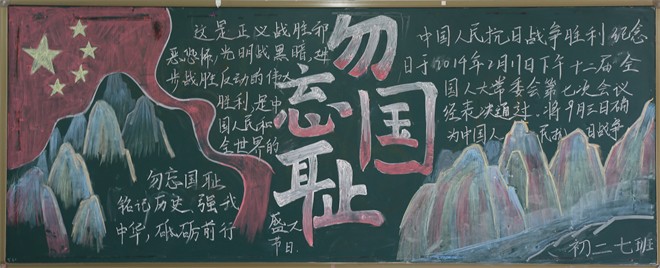 这是正义战胜邪
恶恐怖,光明战黑暗,进
步战胜反动的伟大
胜利,是中
国人民和
全世界的
盛大
节日.
勿忘国耻
勿忘国耻
铭记历史,强我
中华,砥砺前行
中国人民抗日战争胜利纪念
日于2014年2月1日下午十二届全
国人大常委会第七次会议
经表决通过.将9月三日确
为中国人民抗日战争
初二七班